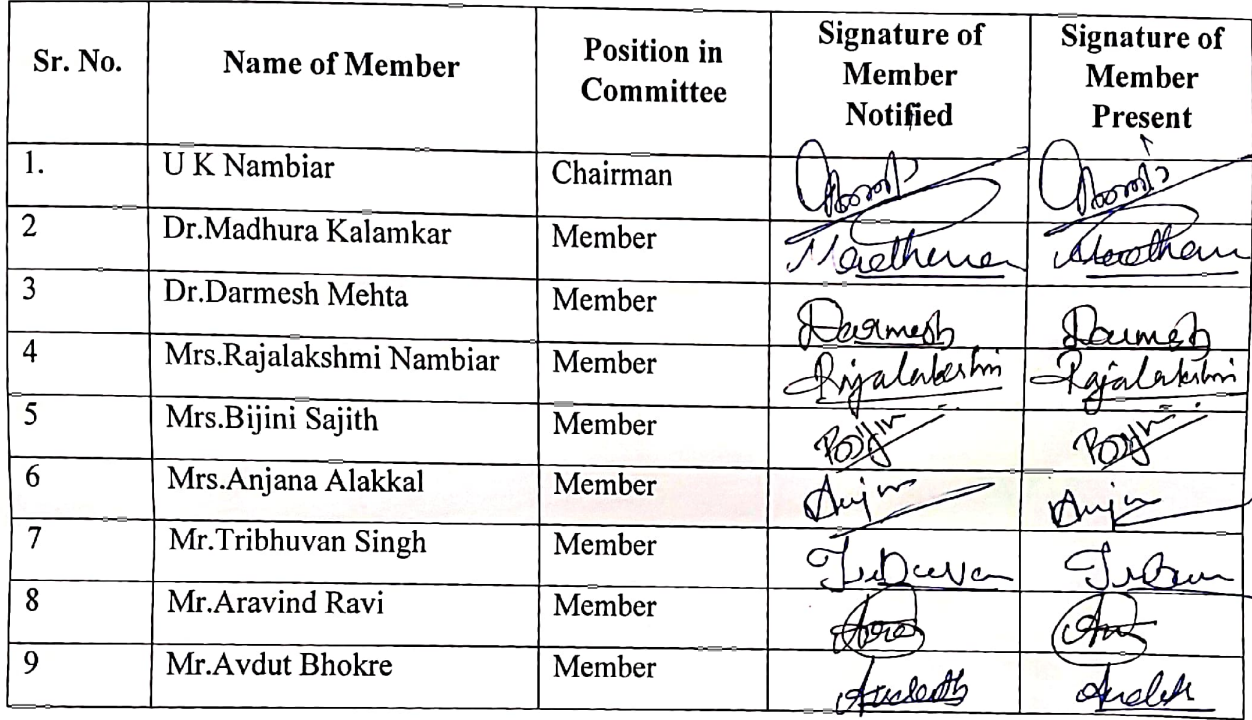 Sr. No. Name of Member Position in Committee Signature of Member Notified Signature of Member Present
1. U K Nambiar Chairman
2 Dr.Madhura Kalamkar Member
3 Dr.Darmesh Mehta Member Darmesh Darmesh
4 Mrs.Rajalakshmi Nambiar Member Rajalakshmi Rajalakshmi
5 Mrs.Bijini Sajith Member
6 Mrs.Anjana Alakkal Member
7 Mr.Tribhuvan Singh Member
8 Mr.Aravind Ravi Member
9 Mr.Avdut Bhokre Member